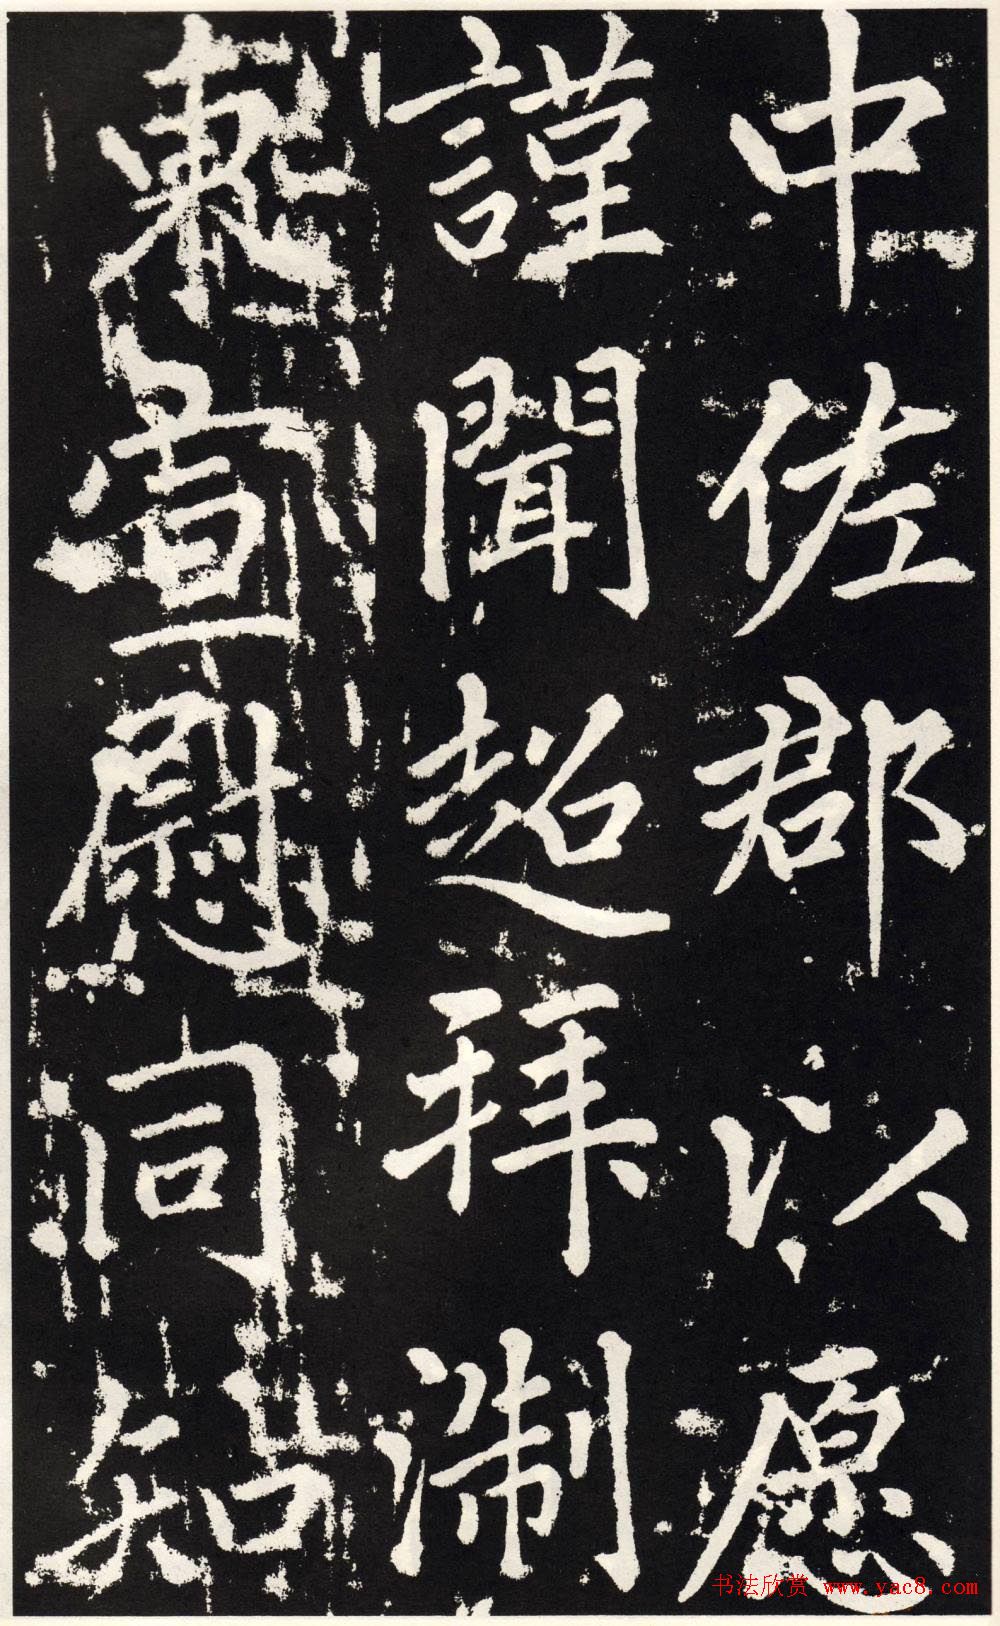 中佐郡以愿
謹聞超拜淛
東宣慰同知
书法欣赏 www.yac8.com